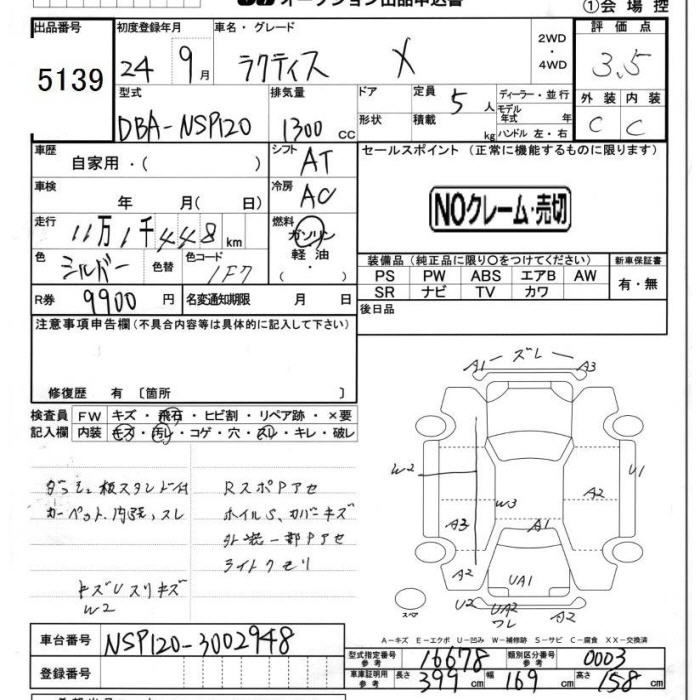 オークション出品申込書
①会場控
出品番号 初度登録年月 車名・グレード 2WD・4WD 評価点
5139 24 9月 ラクティス X 3.5
型式 排気量 ドア 定員 5人 ディーラー・並行 外装 内装
DBA-NSP120 1300cc 形状 積載 kg モデル年式 年 ハンドル 左・右 C C
車歴 自家用・( ) シフト AT セールスポイント (正常に機能するものに限ります)
車検 年 月( 日) 冷房 AC
NOクレーム・売切
走行 11万1千448km 燃料 ガソリン・軽油・
色 シルバー 色替 色コード 1F7
装備品(純正品に限り○をつけてください) 新車保証書
PS PW ABS エアB AW 有・無
SR ナビ TV カワ
R券 9900円 名変通知期限 月 日
後日品
注意事項申告欄(不具合内容等は具体的に記入して下さい)
修復歴 有〔箇所 〕
検査員記入欄 FW キズ・飛石・ヒビ割・リペア跡・×要
内装 キズ・汚レ・コゲ・穴・スレ・キレ・破レ
板スタンド付 RスポPアセ
カーペット、内張、スレ ホイルS、カバーキズ
外装一部Pアセ
ライトクモリ
キズUスリキズ
W2
A1 ズレ A3
W2 U1
A2
W3
A3 A1
A2 A2
UA1
スペア U2 UA2
A-キズ E-エクボ U-凹み W-補修跡 S-サビ C-腐食 XX-交換済
車台番号 NSP120-3002948
型式指定番号 参考 16678 類別区分番号 参考 0003
登録番号 車庫証明用 参考 長さ 399cm 幅 169cm 高さ 158cm